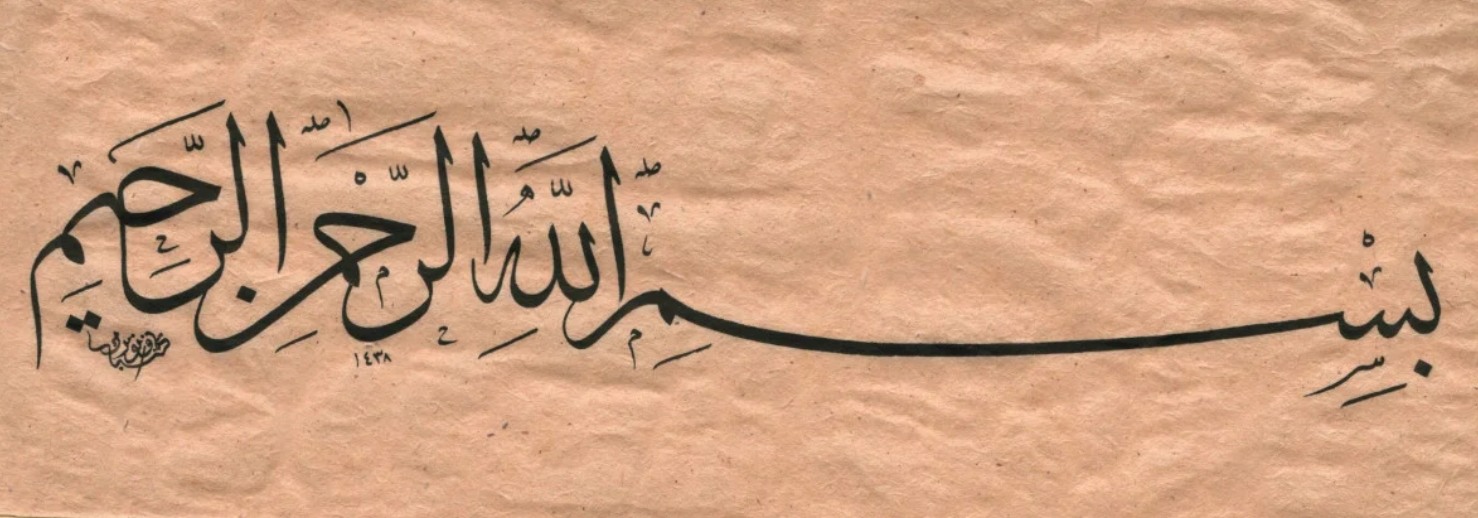 بِسْمِ ٱللَّهِ ٱلرَّحْمٰنِ ٱلرَّحِيمِ
١٤٣٨